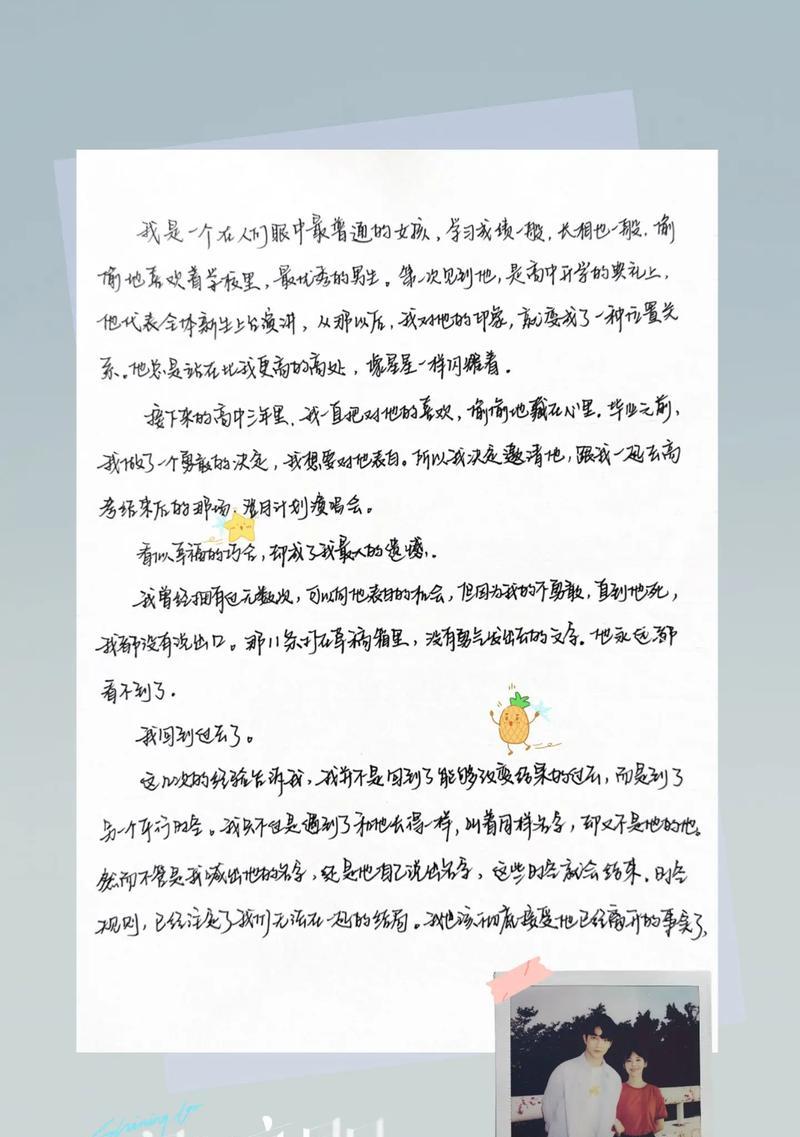 我是一个在人们眼中最普通的女孩，学习成绩一般，长相也一般，偷
偷地喜欢着学校里，最优秀的男生。第一次见到他，是高中开学的典礼上，
他代表全体新生上台演讲，从那以后，我对他的印象，就变成了一种位置关
系。他总是站在比我更高的高处，像星星一样闪耀着。
接下来的高中三年里，我一直把对他的喜欢，偷偷地藏在心里。毕业之前，
我做了一个勇敢的决定，我想要对他表白。所以我决定邀请他，跟我一起去高
考结束后的那场，澄月计划演唱会。
看似幸福的巧合，却成了我最大的遗憾。
我曾经拥有过无数次，可以向他表白的机会，但因为我的不勇敢，直到他死，
我都没有说出口。那11条打在草稿箱里，没有勇气发出去的文字。他永远都
看不到了。
我回到过去了。
这几次的经验告诉我，我并不是回到了能够改变结果的过去，而是到了
另一个平行时空。我只不过是遇到了和他长得一样，叫着同样名字，却又不是他的他。
然而不管是我喊出他的名字，还是他自己说出名字，这些时空就会结束。时空
规则，已经注定了我们无法在一起的结局。我也该彻底接受他已经离开的事实了，
Shining for